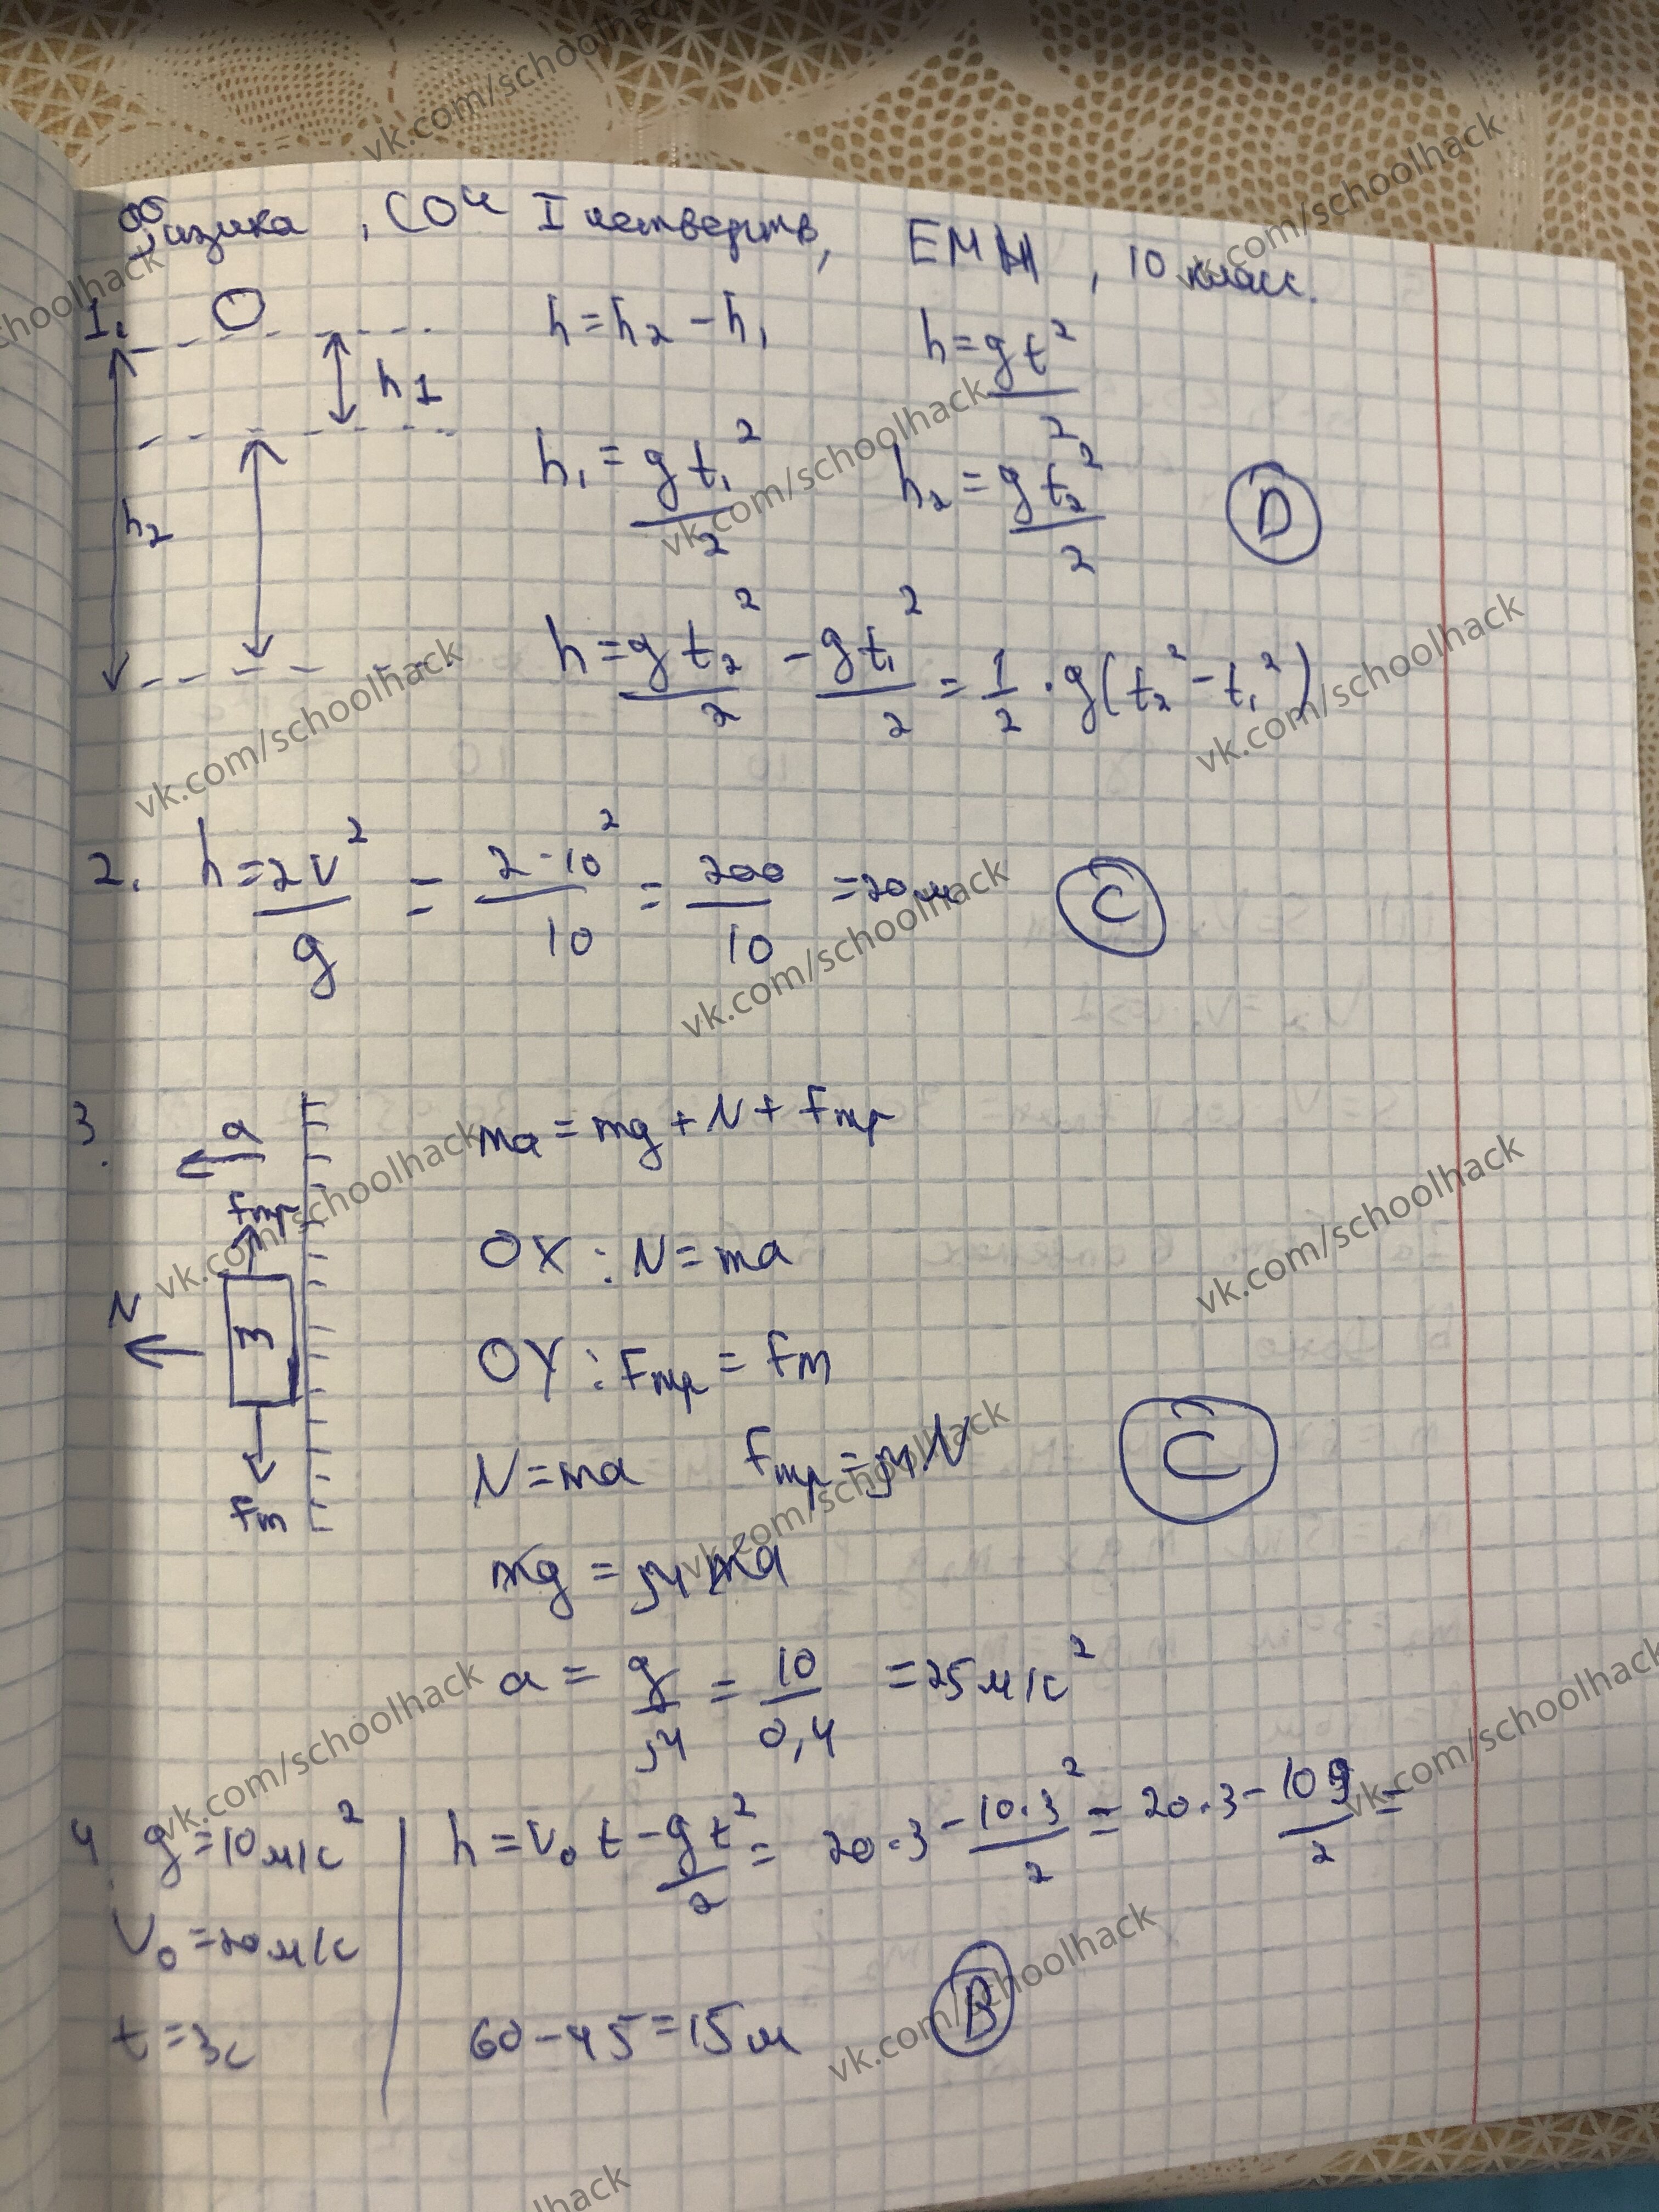 Физика, СОЧ I четверть, ЕМН, 10 класс.
1. h1 h2
h = h₂ - h₁ h = gt²/2
h₁ = gt₁²/2 h₂ = gt₂²/2 D
h = gt₂²/2 - gt₁²/2 = 1/2 · g(t₂² - t₁²)
2. h = 2V²/g = 2·10²/10 = 200/10 = 20м C
3. a Fтр N 3 Fт
ma = mg + N + Fтр
OX : N = ma
OY : Fтр = Fт
N = ma Fтр = μ·N C
mg = μma
a = g/μ = 10/0,4 = 25м/с²
4. g = 10м/с² h = V₀t - gt²/2 = 20·3 - 10·3²/2 = 20·3 - 10 9/2 =
V₀ = 20м/с
t = 3с 60 - 45 = 15м B
vk.com/schoolhack
vk.com/schoolhack
vk.com/schoolhack
schoolhack
vk.com/schoolhack
vk.com/schoolhack
vk.com/schoolhack
vk.com/schoolhack
vk.com/schoolhack
vk.com/schoolhack
vk.com/schoolhack
vk.com/schoolhack
vk.com/schoolhack
vk.com/schoolhack
hack